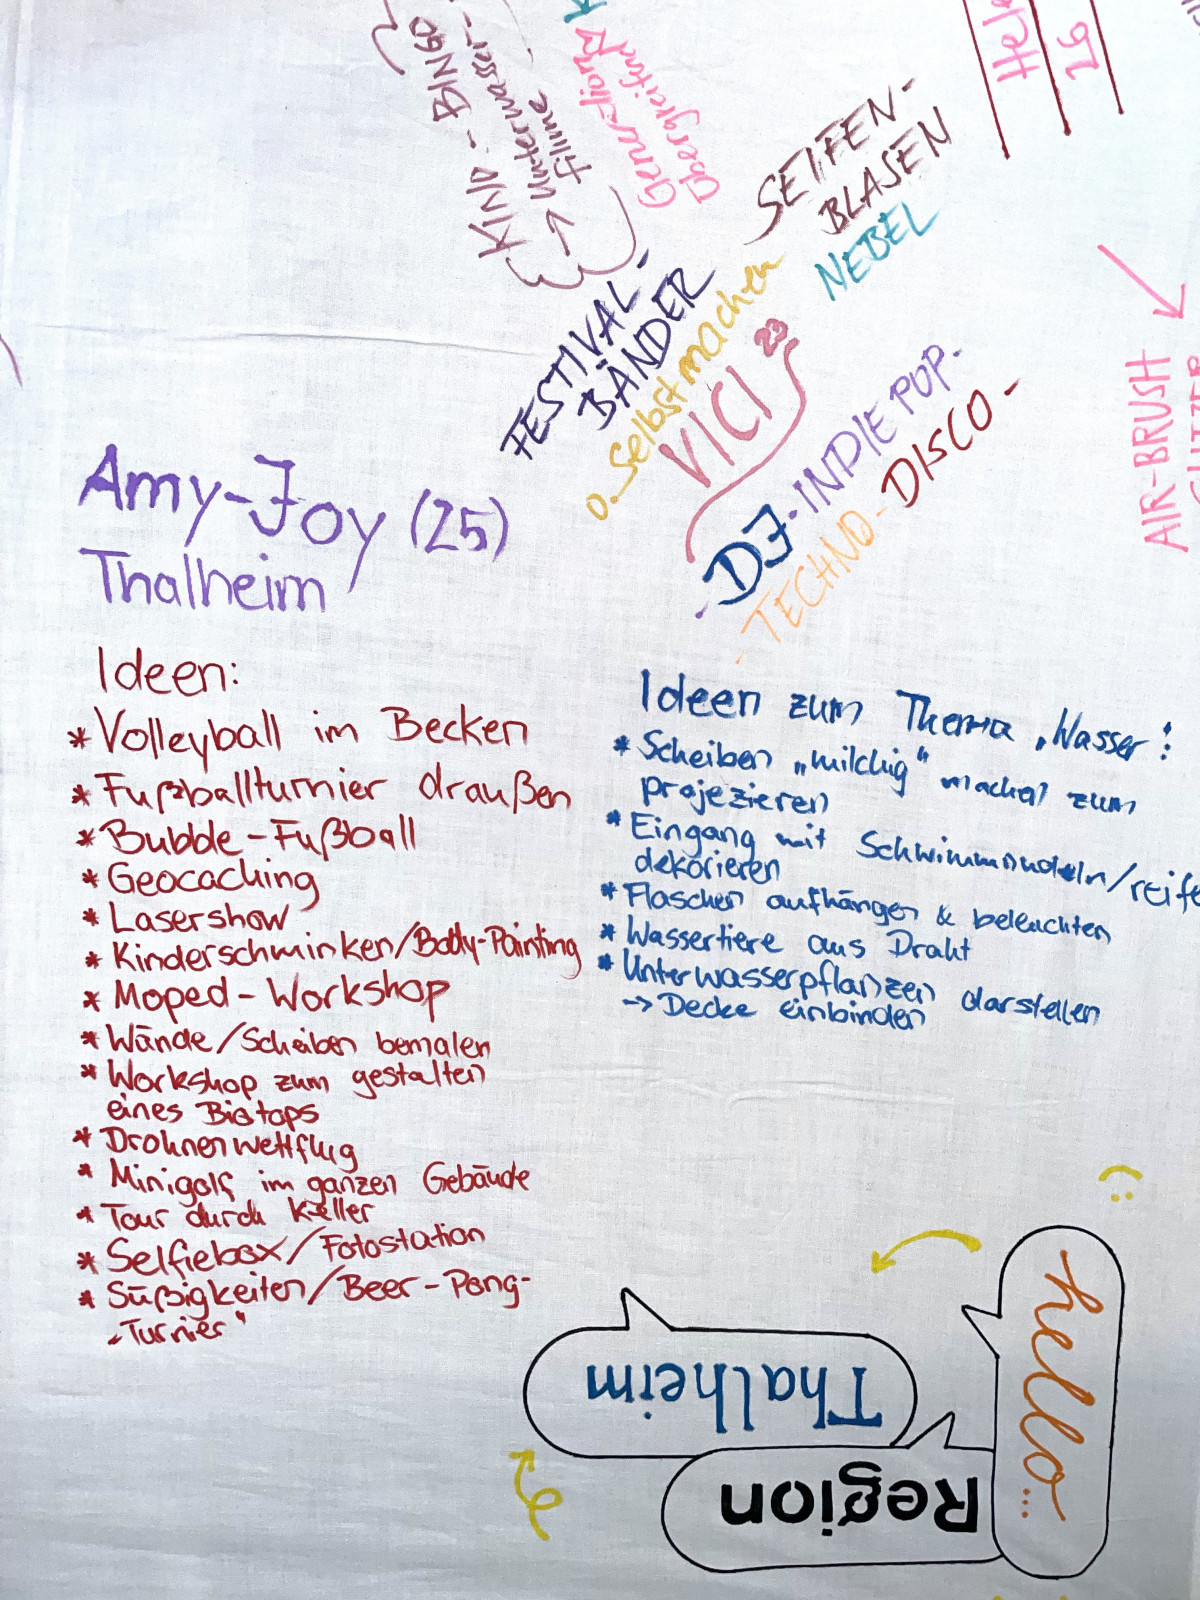 KINO - BINGO
Unterwasser-
filme
Generations
übergreifend
Helo
16
SEIFEN-
BLASEN
NEBEL
FESTIVAL-
BÄNDER
o. Selbstmachen
VICI 23
- DJ - INDIE POP -
- TECHNO - DISCO -
AIR-BRUSH
Amy-Joy (25)
Thalheim
Ideen:
* Volleyball im Becken
* Fußballturnier draußen
* Bubble-Fußball
* Geocaching
* Lasershow
* Kinderschminken/Body-Painting
* Moped-Workshop
* Wände/Scheiben bemalen
* Workshop zum gestalten
eines Biotops
* Drohnenwettflug
* Minigolf im ganzen Gebäude
* Tour durch Keller
* Selfiebox/Fotostation
* Süßigkeiten/Beer-Pong-
„Turnier“
Ideen zum Thema „Wasser“:
* Scheiben „milchig“ machen zum
projezieren
* Eingang mit Schwimmnudeln/reife
dekorieren
* Flaschen aufhängen & beleuchten
* Wassertiere aus Draht
* Unterwasserpflanzen darstellen
→ Decke einbinden
hello...
Region
Thalheim